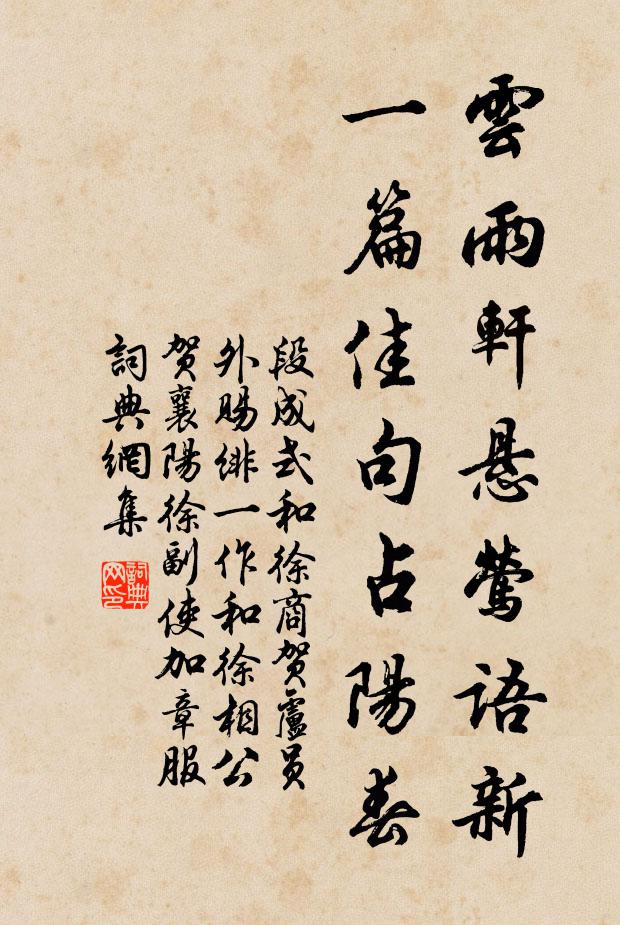 雲雨軒悬鶯語新
一篇佳句占陽春
段成式和徐商贺盧員
外賜绯一作和徐相公
贺襄陽徐副使加章服
詞典網集
詞典
网印